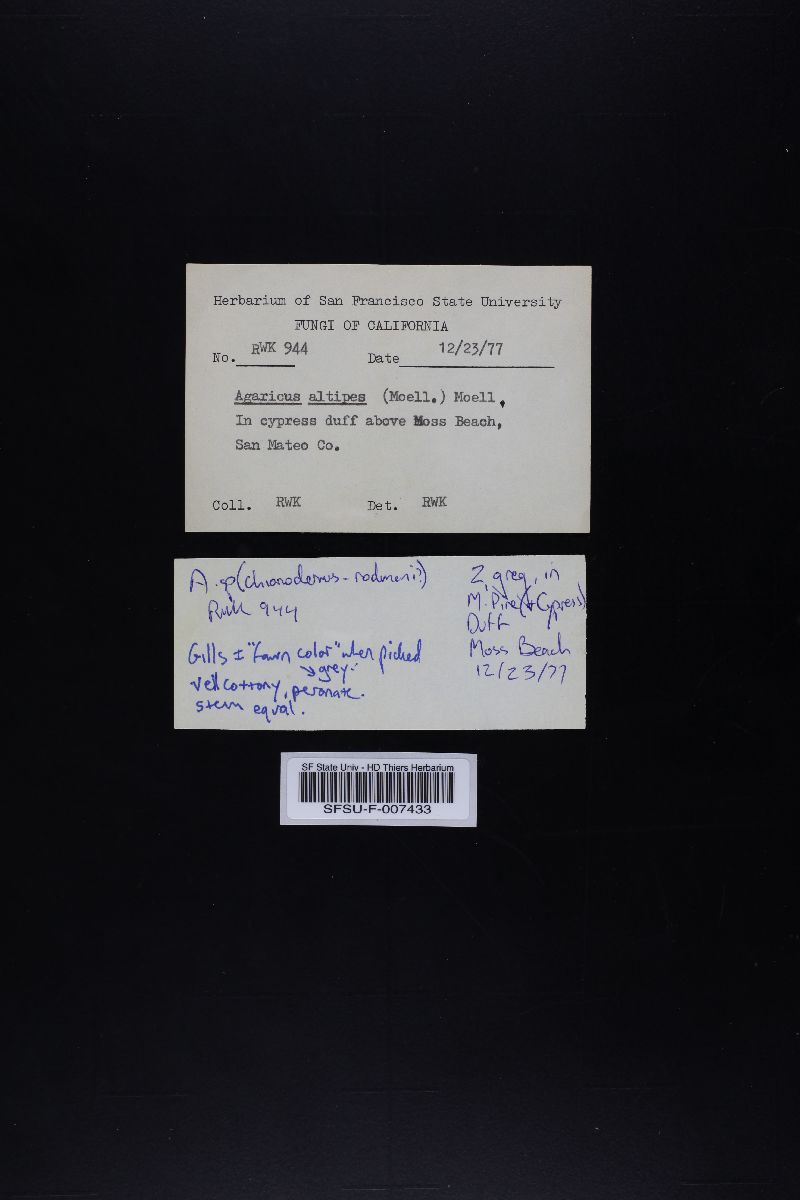 Herbarium of San Francisco State University
FUNGI OF CALIFORNIA
No. RWK 944 Date 12/23/77
Agaricus altipes (Moell.) Moell.
In cypress duff above Moss Beach,
San Mateo Co.
Coll. RWK Det. RWK
A. sp (chionodermus - rodmani?)
RWK 944
Gills ± "fawn color" when picked
↘ grey.
veil cottony, peronate.
stem equal.
2, greg, in
M. Pine (+ Cypress)
Duff
Moss Beach
12/23/77
SF State Univ - HD Thiers Herbarium
SFSU-F-007433